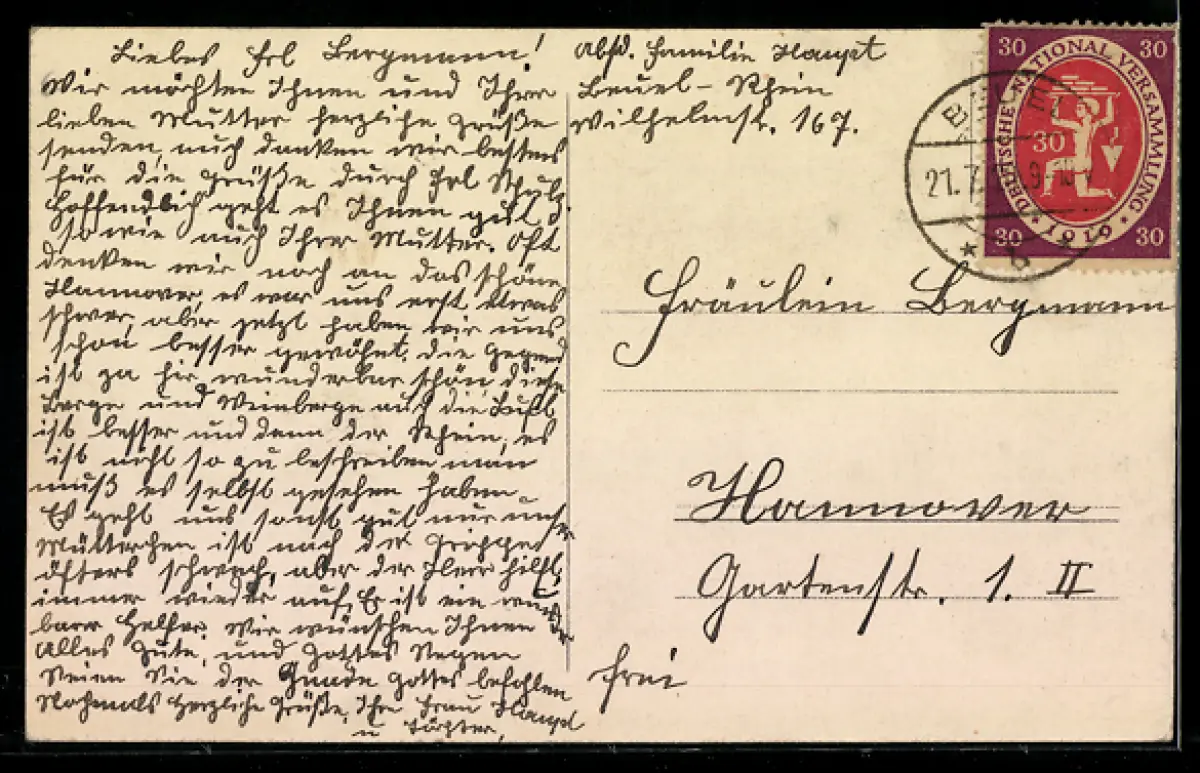 Liebes Frl Bergmann!
Wir möchten Ihnen und Ihrer
lieben Mutter herzliche Grüße
senden, auch danken wir bestens
für die Grüße durch Frl Schulz.
Hoffendlich geht es Ihnen gut
so wie auch Ihrer Mutter. Oft
denken wir noch an das schöne
Hannover, es war uns erst etwas
schwer, aber jetzt haben wir uns
schon besser gewöhnt. die Gegend
ist ja hir wunderbar schön diese
Berge und Weinberge auch die Luft
ist besser und dann der Rhein, es
ist nicht so zu beschreiben man
muß es selbst gesehen haben.
Es geht uns sonst gut nur unser
Mütterchen ist nach der Grippe
öfters schwach, aber der Herr hilft
immer wieder auf, Er ist ein wunder
barer Helfer. Wir wünschen Ihnen
Alles Gute, und Gottes Segen
Seien Sie der Gnade Gottes befohlen
Nochmals herzliche Grüße, Ihre Frau Haupt
u Töchter,
Absd. Familie Haupt
Beuel - Rhein
Wilhelmstr. 167.
30 30
DEUTSCHE NATIONAL VERSAMMLUNG
30
* 1919 *
30 30
21.7. 9-10
* b *
Fräulein Bergmann
Hannover
Gartenstr. 1. II
frei